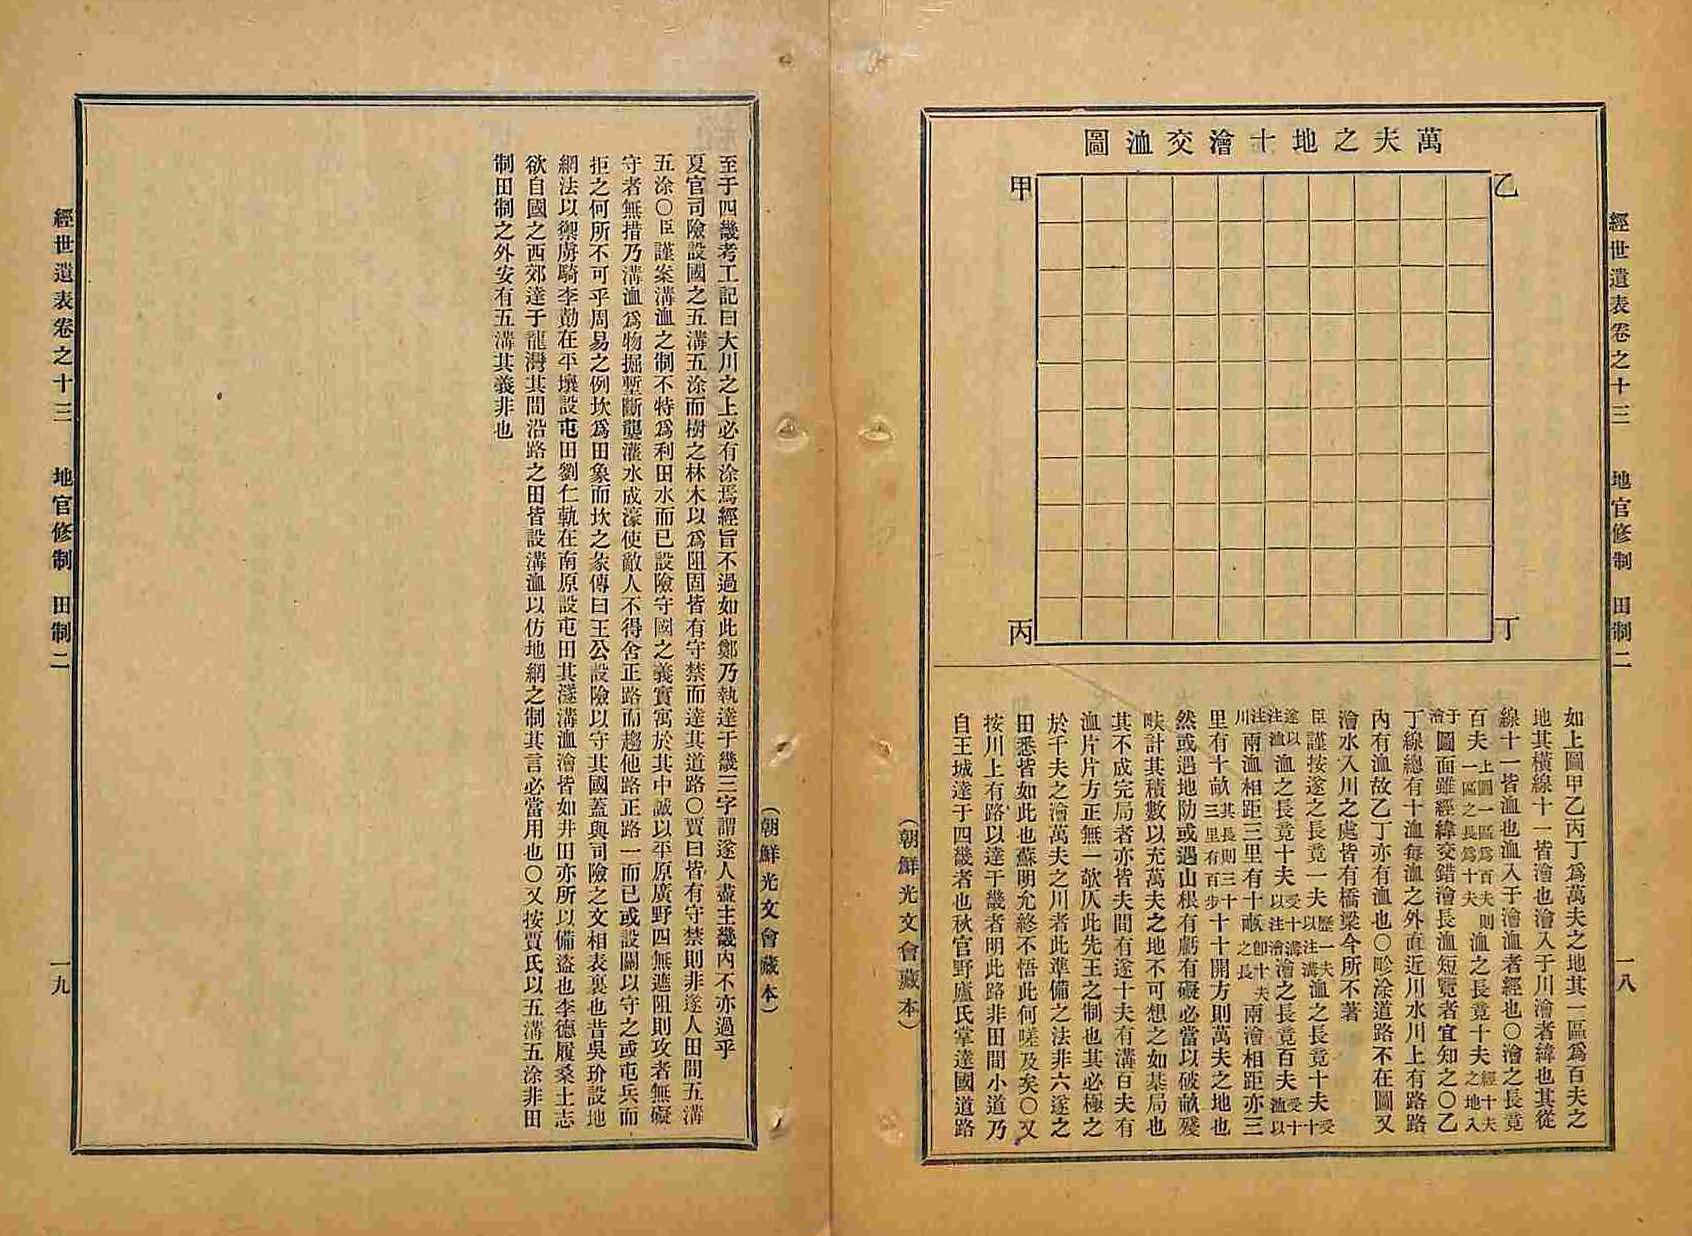 經世遺表卷之十三 地官修制 田制二
一八
萬夫之地十澮交洫圖
乙
甲
丁
丙
如上圖甲乙丙丁爲萬夫之地其一區爲百夫之
地其橫線十一皆澮也澮入于川澮者緯也其從
線十一皆洫也洫入于澮洫者經也〇澮之長竟
百夫上圖一區爲百夫則一區之長爲十夫洫之長竟十夫經十夫之地入
于澮圖面雖經緯交錯澮長洫短覽者宜知之〇乙
丁線總有十洫每洫之外直近川水川上有路路
內有洫故乙丁亦有洫也〇畛涂道路不在圖又
澮水入川之處皆有橋梁今所不著
臣謹按遂之長竟一夫歷一夫以注溝洫之長竟十夫受十
遂以注洫洫之長竟十夫受十溝以注澮澮之長竟百夫受十洫以
注川兩洫相距三里有十畝卽十夫之長兩澮相距亦三
里有十畝其長則三十三里有百步十十開方則萬夫之地也
然或遇地防或遇山根有虧有礙必當以破畝殘
畎計其積數以充萬夫之地不可想之如棊局也
其不成完局者亦皆夫間有遂十夫有溝百夫有
洫片片方正無一欹仄此先王之制也其必極之
於千夫之澮萬夫之川者此準備之法非六遂之
田悉皆如此也蘇明允終不悟此何嗟及矣〇又
按川上有路以達于畿者明此路非田間小道乃
自王城達于四畿者也秋官野廬氏掌達國道路
(朝鮮光文會藏本)
至于四畿考工記曰大川之上必有涂焉經旨不過如此鄭乃執達于畿三字謂遂人盡主畿內不亦過乎
夏官司險設國之五溝五涂而樹之林木以爲阻固皆有守禁而達其道路〇賈曰皆有守禁則非遂人田間五溝
五涂〇臣謹案溝洫之制不特爲利田水而已設險守國之義實寓於其中誠以平原廣野四無遮阻則攻者無礙
守者無措乃溝洫爲物掘塹斷壟灌水成濠使敵人不得舍正路而趨他路正路一而已或設關以守之或屯兵而
拒之何所不可乎周易之例坎爲田象而坎之彖傳曰王公設險以守其國蓋與司險之文相表裏也昔吳玠設地
網法以禦虜騎李勣在平壤設屯田劉仁軌在南原設屯田其遂溝洫澮皆如井田亦所以備盜也李德履桑土志
欲自國之西郊達于龍灣其間沿路之田皆設溝洫以仿地網之制其言必當用也〇又按賈氏以五溝五涂非田
制田制之外安有五溝其義非也
(朝鮮光文會藏本)
經世遺表卷之十三 地官修制 田制二
一九